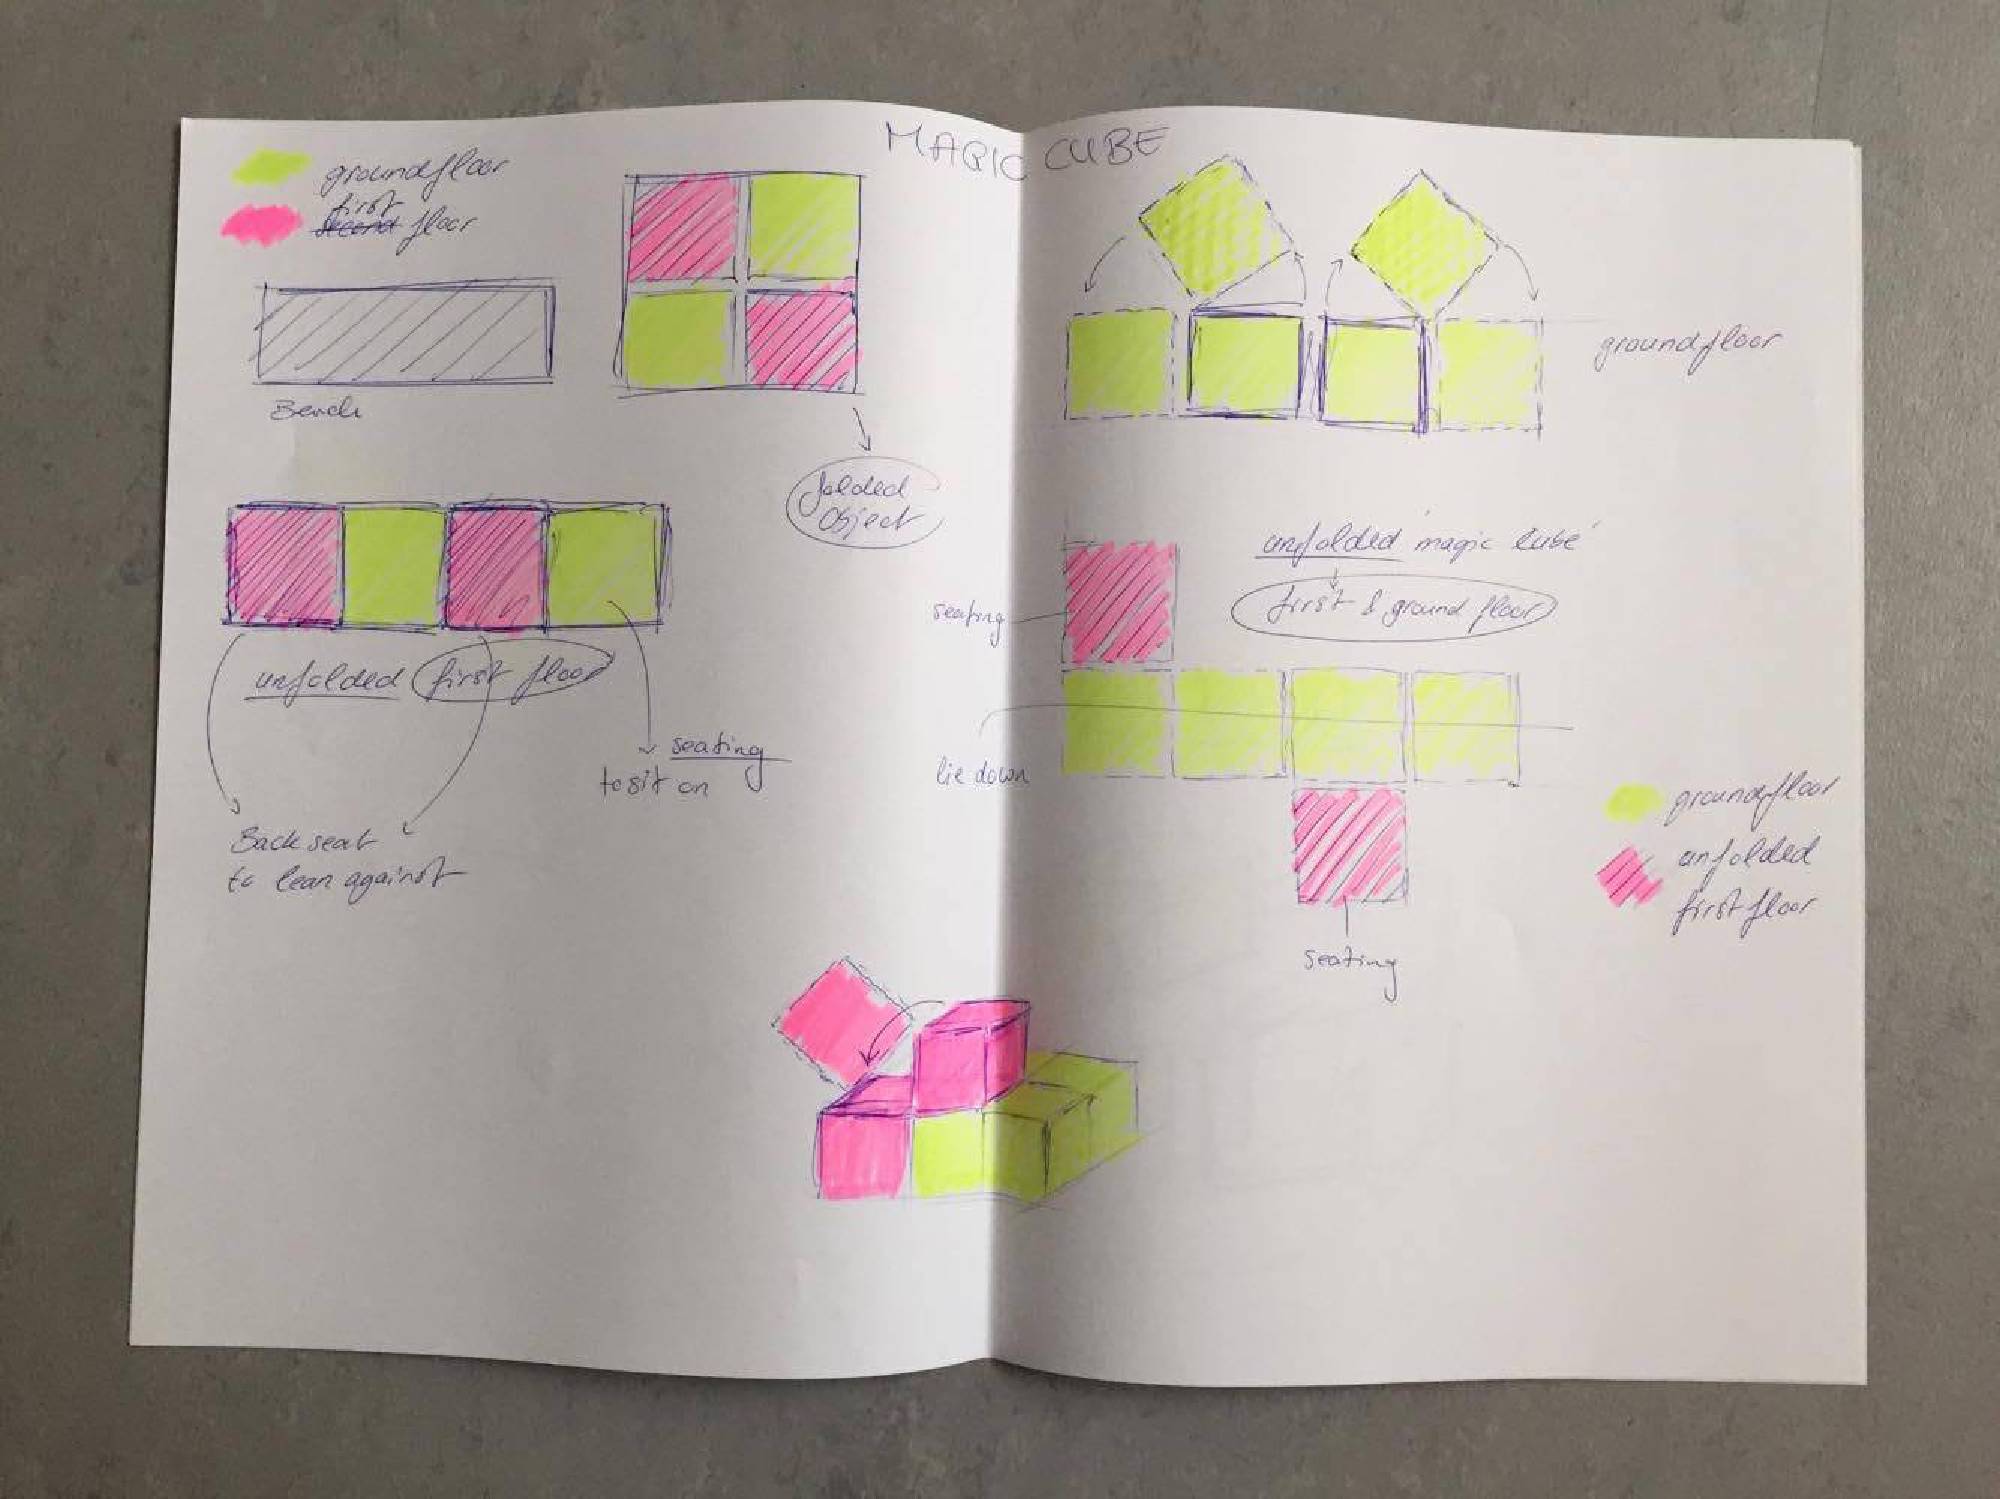 MAGIC CUBE
groundfloor
first
second floor
Bench
folded
object
unfolded first floor
seating
to sit on
Back seat
to lean against
groundfloor
unfolded 'magic cube'
first & ground floor
seating
lie down
seating
groundfloor
unfolded
first floor